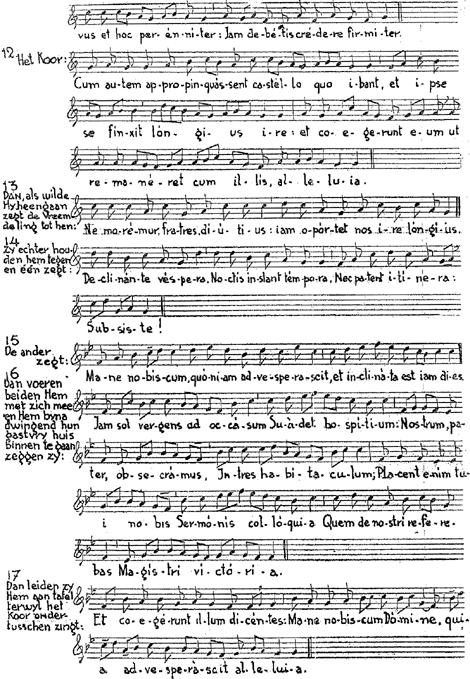 vus et hoc per-én-ni-ter: Jam de-bé-tis cré-de-re fir-mi-ter.
12 Het Koor:
Cum au-tem ap-pro-pin-quàs-sent ca-stél-lo quo i-bant, et i-pse
se fin-xit lón-gi-us i-re: et co-e-ge-runt e-um ut
re-ma-né-ret cum il-lis, al-le-lu-ia.
13
Dan, als wilde
Hy heengaan
zegt de Vreem
deling tot hen:
Ne mo-re-mur, fra-tres, di-ú-ti-us: iam o-pór-tet nos i-re lón-gi-us.
14
Zy echter hou-
den hem tegen
en één zegt:
De-cli-nán-te vés-pe-ra, No-ctis in-stant tém-po-ra, Nec pa-tent i-ti-ne-ra:
Sub-sis-te!
15
De ander
zegt:
Ma-ne no-bis-cum, quo-ni-am ad-ve-spe-ra-scit, et in-cli-ná-ta est iam di-es.
16
Dan voeren
beiden Hem
met zich mee
en Hem byna
dwingend hun
gastvry huis
binnen te gaan
zeggen zy:
Jam sol ver-gens ad oc-cá-sum Su-à-det ho-spi-ti-um: Nos-trum, pa-
ter, ob-se-crà-mus, In-tres ha-bi-ta-cu-lum; Pla-cent e-nim tu-
i no-bis Ser-mó-nis col-ló-qui-a Quem de no-stri re-fe-re-
bas Ma-gis-tri vi-ctó-ri-a.
17
Dan leiden zy
Hem aan tafel
terwyl het
Koor onder-
tusschen zingt:
Et co-e-gé-runt il-lum di-cén-tes: Ma-ne no-bis-cum Dó-mi-ne, qui-
a ad-ve-spe-rà-scit al-le-lui-a.